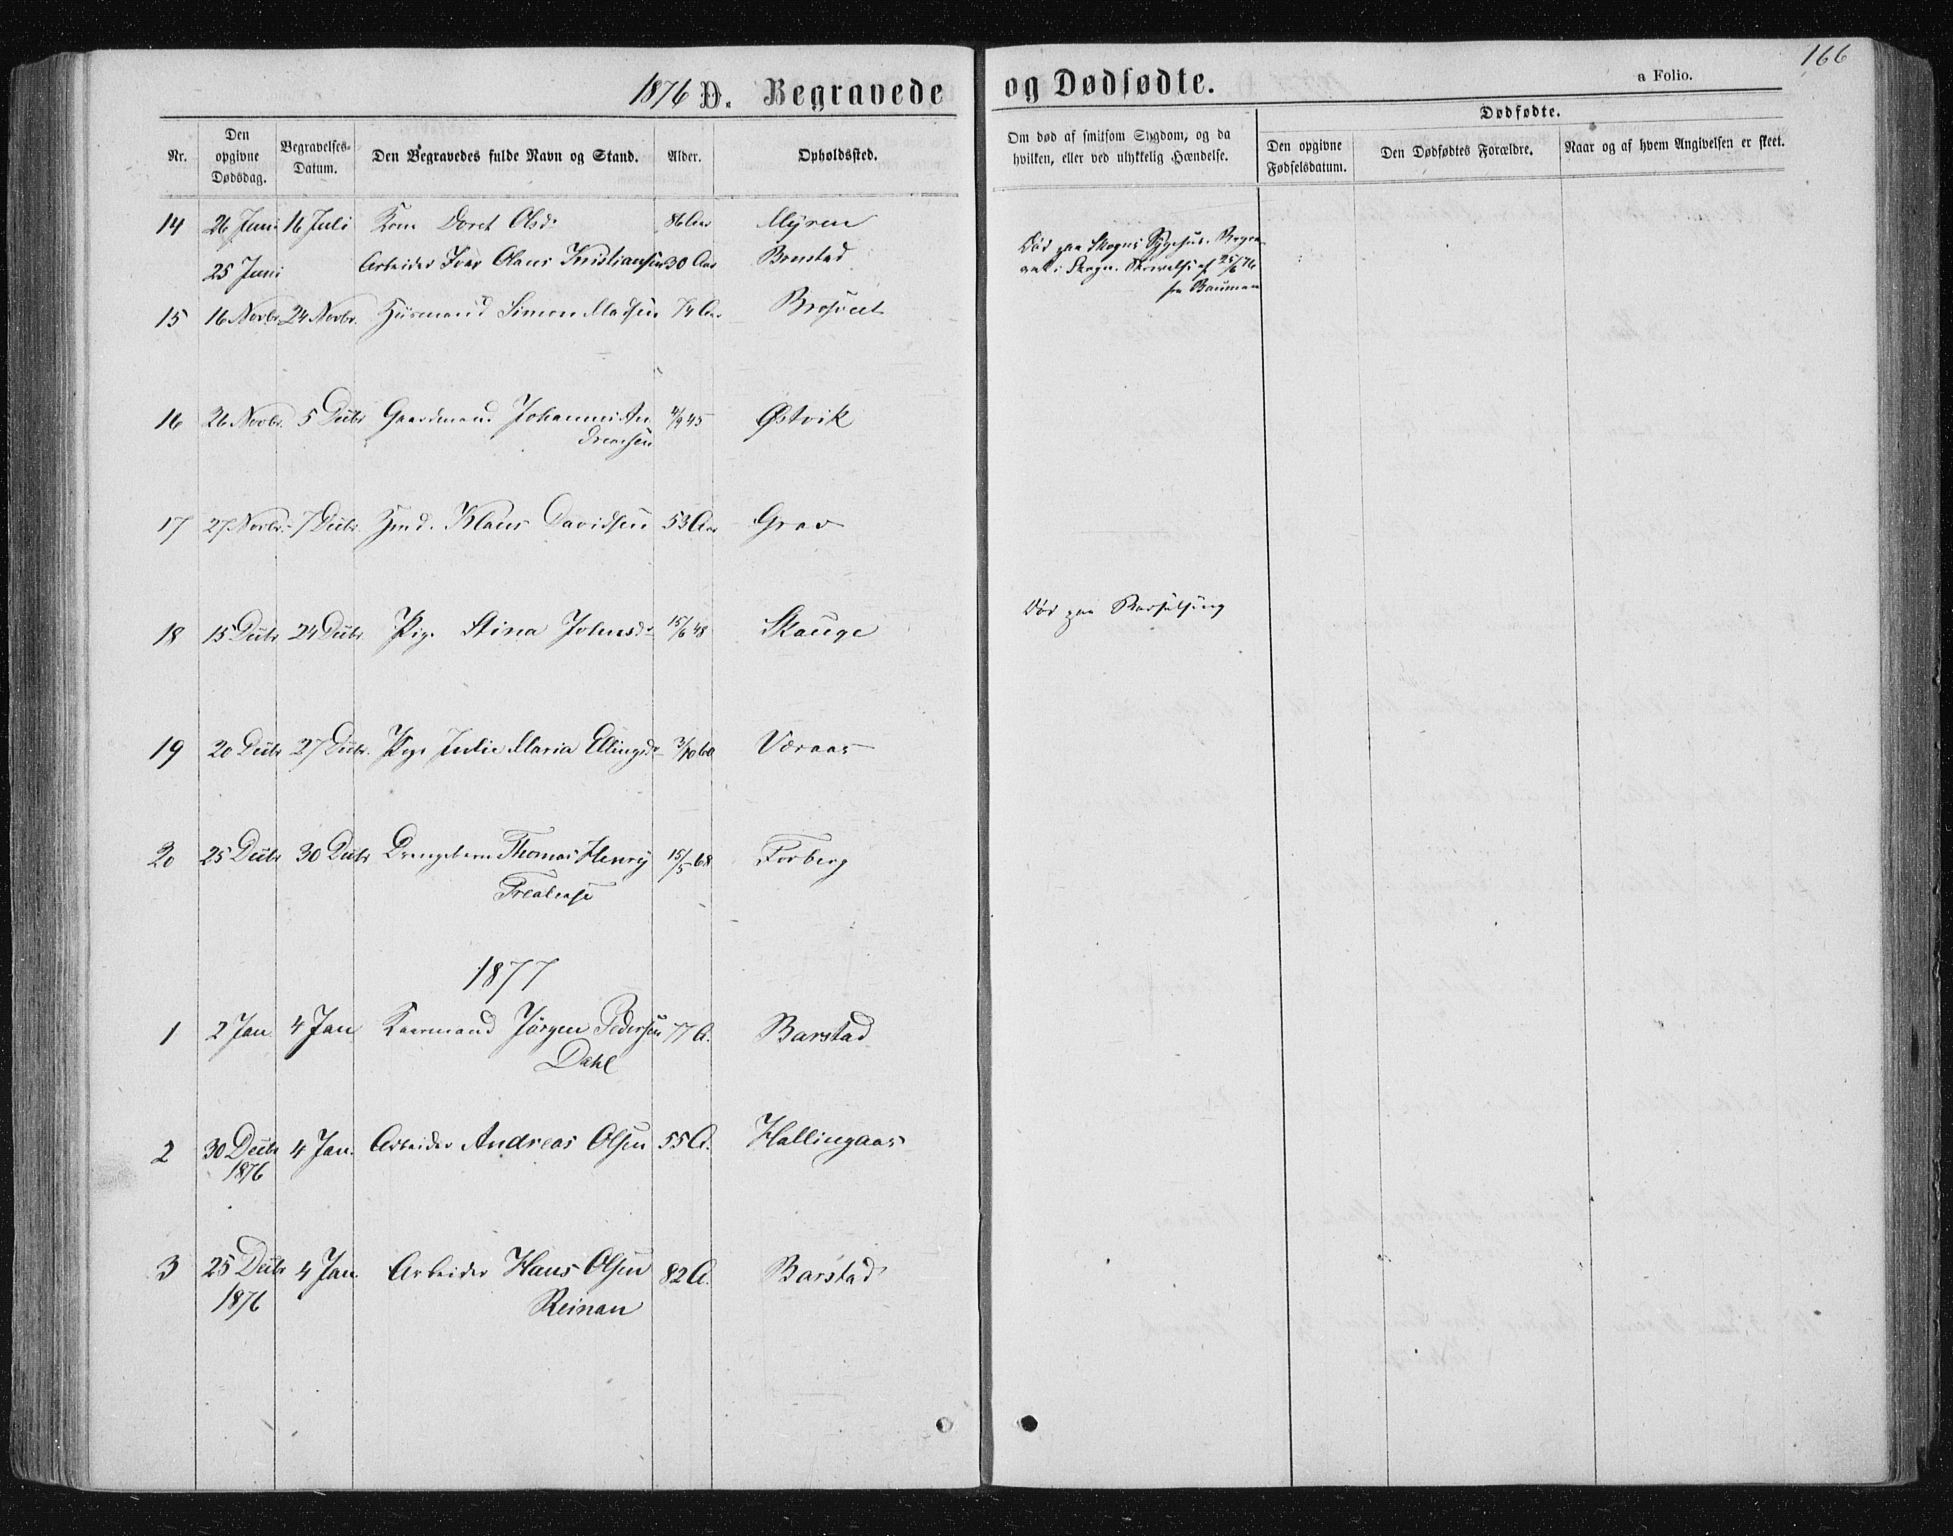 1876 D. Begravede og Dødfødte.
a Folio. 166
Nr. Den opgivne Dødsdag. Begravelses-Datum. Den Begravedes fulde Navn og Stand. Alder. Opholdssted. Om død af smitsom Sygdom, og da hvilken, eller ved ulykkelig Hændelse. Dødfødte. Den opgivne Fødselsdatum. Den Dødfødtes Forældre. Naar og af hvem Angivelsen er skeet.
14 26 Juni 16 Juli Kone Doret Olsdr 86 Aar Myren
25 Juni Arbeider Ivar Olaus Kristiansen 30 Aar Brustad Død paa Skogns Sygehus. Begra-
vet i Skogn. Skrivelse af 25/6 76
fra Bauman
15 16 Novbr. 24 Novbr. Husmand Simon Madsen 74 Aar
16 26 Novbr. 5 Decbr Gaardmand Johannes An-
dreassen 4/9 45 Østvik
17 27 Novbr. 7 Decbr. Hmd. Klaus Davidsen 53 Aar Grav
18 15 Decbr 24 Decbr Pige Stina Johnsdr 15/6 48 Skauge Død paa Barselseng
19 20 Decbr 27 Decbr. Pige Julie Maria Ellingsdr 3/10 60 Væraas
20 25 Decbr 30 Decbr Drengebarn Thomas Henry 15/5 68 Forberg
1877
1 2 Jan. 4 Jan Kaarmand Jörgen Pedersen 77 A. Barstad
Dahl
2 30 Decbr 4 Jan. Arbeider Andreas Olsen 55 A. Hallingaas
1876
3 25 Decbr 4 Jan. Arbeider Hans Olsen 82 A. Barstad
1876 Reinan